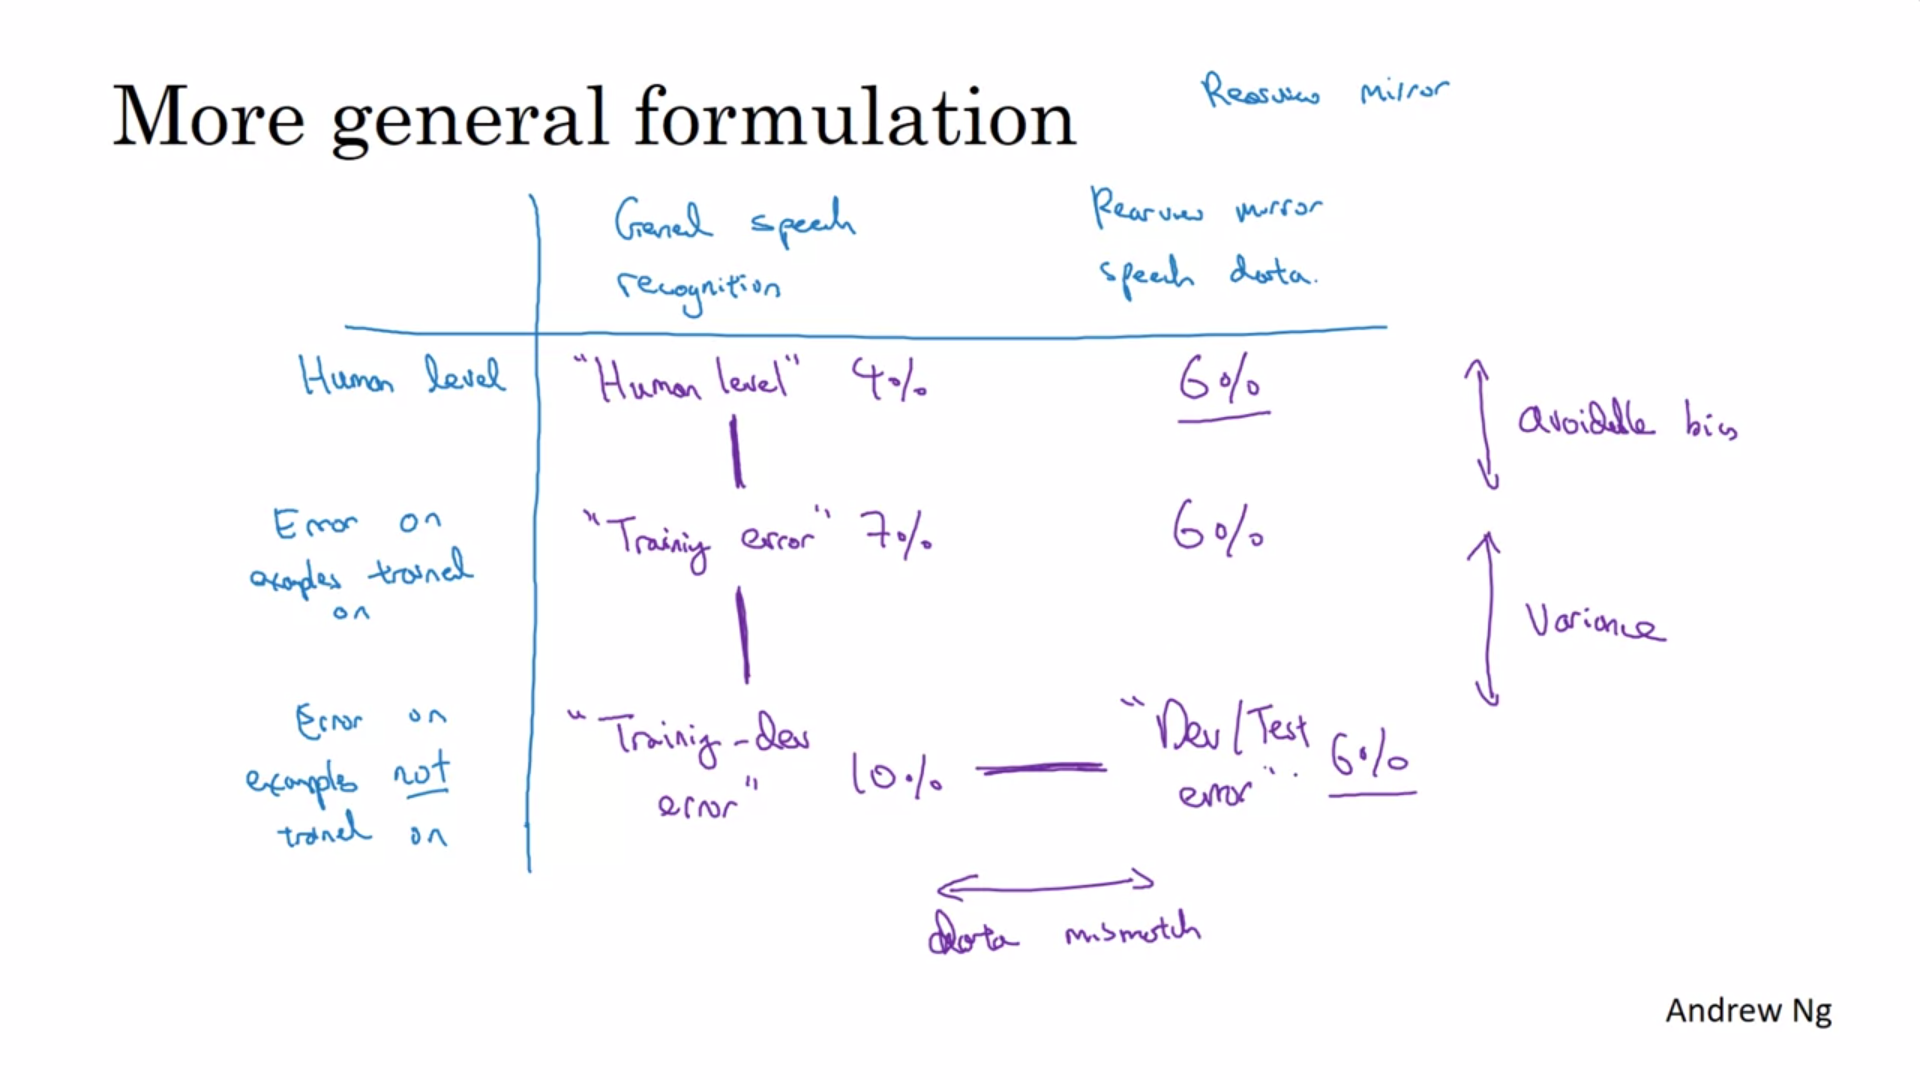 More general formulation
Rearview mirror
General speech
recognition
Rearview mirror
speech data.
Human level
"Human level" 4%
6%
avoidable bias
Error on
examples trained
on
"Training error" 7%
6%
Variance
Error on
examples not
trained on
"Training-dev
error"
10%
"Dev/Test
error".
6%
data mismatch
Andrew Ng